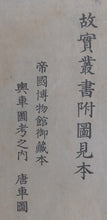 故實叢書附圖見本
帝國博物館御藏本
輿車圖考之内 唐車圖